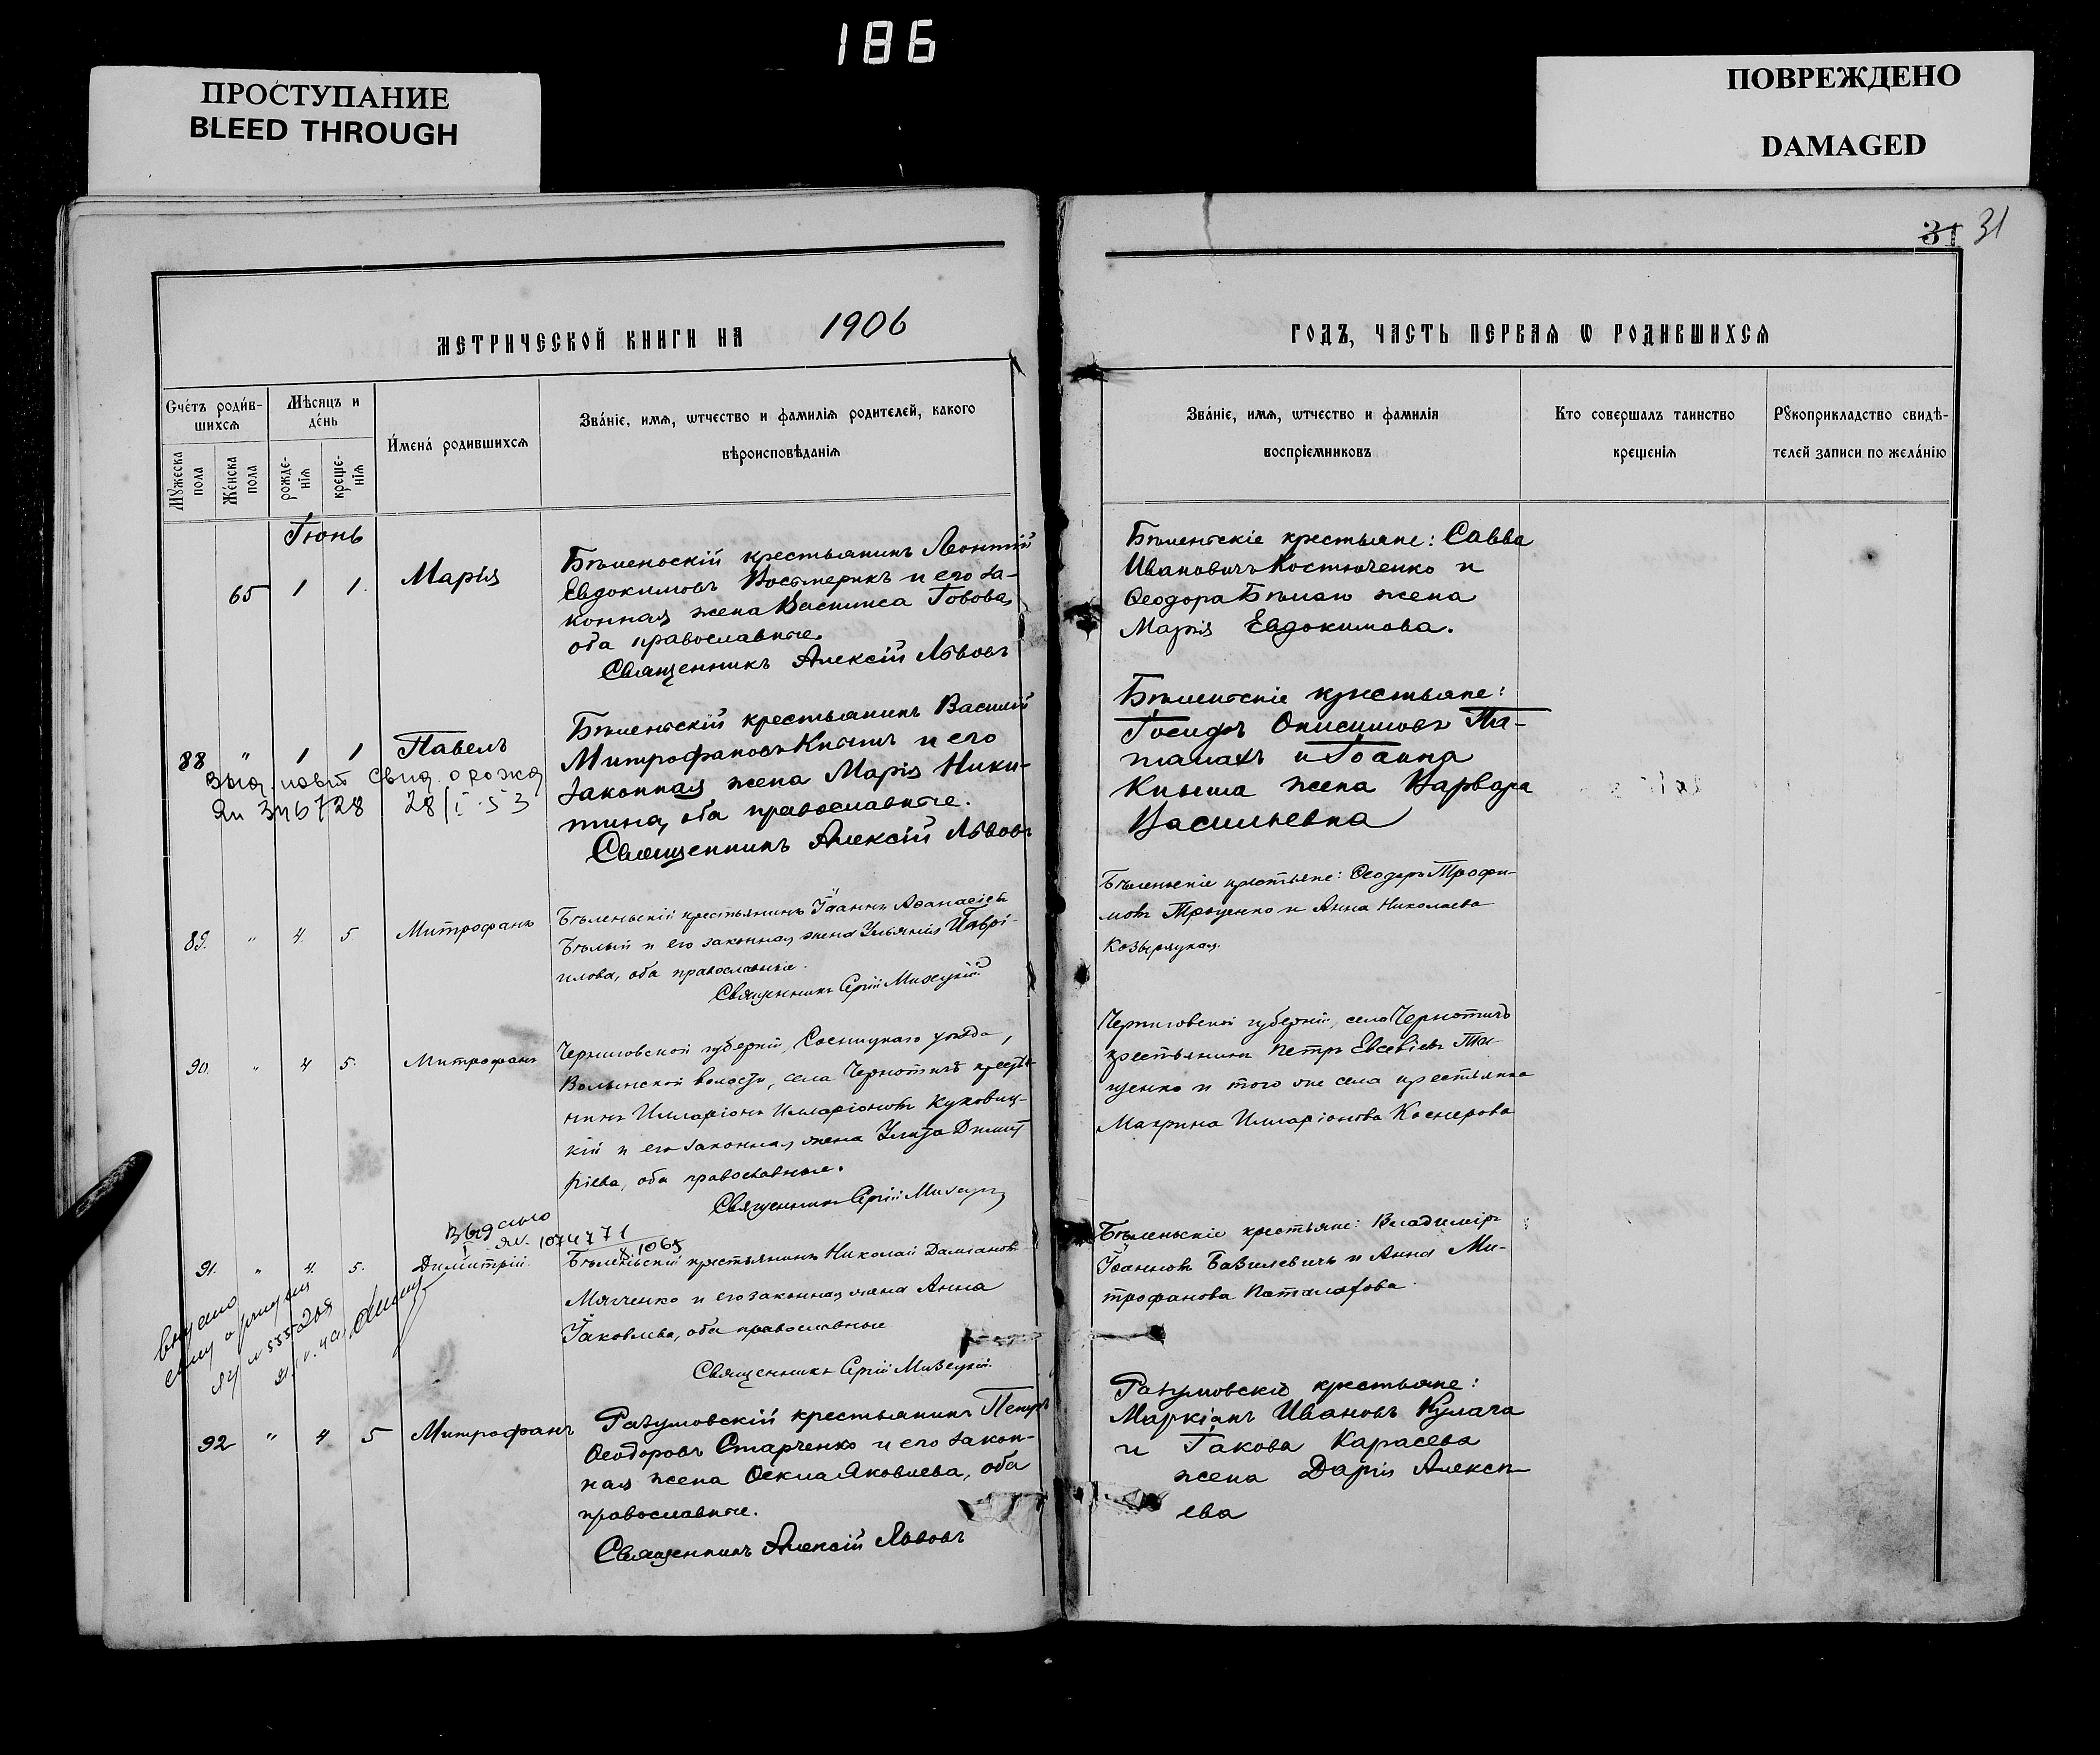 186
ПРОСТУПАНИЕ
BLEED THROUGH
ПОВРЕЖДЕНО
DAMAGED
31 31
МЕТРИЧЕСКОЙ КНИГИ НА 1906
ГОДЪ, ЧАСТЬ ПЕРВАЯ Ѡ РОДИВШИХСЯ
Счéтъ родúв-
шихся
Мѣсяцъ и
дéнь
И́мена́ родившихся
Звáнїе, имя, ѡтчество и фамилїя родителей, какого
вѣроисповѣданїя
Мꙋжеска
пола
Жéнска
пола
рожде-
нїя
креще-
нїя
Звáнїе, имя, ѡтчество и фамилїя
воспрїемниковъ
Кто совершалъ таинство
крещенїя
Рꙋкоприкладство свидѣ-
телей записи по желáнїю
Іюнь
65 1 1. Марія
Бѣленьскій крестьянинъ Леонтій
Евдокимовъ Костмерикъ и его за-
конная жена Василиса Іовова,
оба православные.
Священникъ Алексій Львовъ
Бѣленьскіе крестьяне: Савва
Ивановичъ Костюченко и
Ѳеодора Бѣлаго жена
Марія Евдокимова.
88 " 1 1 Павелъ
Выд. повт. свид. о рожд
346728 28/I-53
Бѣленьскій крестьянинъ Василій
Митрофановъ Кнышъ и его
законная жена Марія Ники-
тина, оба православные.
Священникъ Алексій Львовъ
Бѣленьскіе крестьяне:
Іосифъ Онисимовъ Па-
талахъ и Іоанна
Кныша жена Варвара
Васильевна
89. " 4. 5 Митрофанъ
Бѣленьскій крестьянинъ Іоаннъ Аѳанасіевъ
Бѣлый и его законная жена Ульянія Гаврі-
илова, оба православные.
Священникъ Сергій
Бѣленьскіе крестьяне: Ѳеодоръ Трофи-
мовъ Троценко и Анна Николаева
90. " 4 5. Митрофанъ
Черниговской губерніи, Сосницкаго уѣзда,
Волынской волости, села Чернотичъ крестья-
нинъ Илларіонъ Илларіоновъ Куковиц-
кій и его законная жена Улита Димит
ріева, оба православные.
Священникъ Сергій
Черниговской губерніи, села Чернотичъ
крестьянинъ Петръ Евсевіевъ Ти-
щенко и того же села крестьянка
Макрина Илларіонова
Выдано
1074771
91. " 4. 5. Димитрій
Бѣленьскій крестьянинъ Николай Даміановъ
Мяченко и его законная жена Анна
Іаковлева, оба православные
Священникъ Сергій
Бѣленьскіе крестьяне: Владиміръ
Іоанновъ Базилевичъ и Анна Ми-
трофанова Паталахова
92 " 4 5 Митрофанъ
Разумовскій крестьянинъ Петръ
Ѳеодоровъ Старченко и его закон-
ная жена Ѳекла Яковлева, оба
православные.
Священникъ Алексій Львовъ
Разумовскіе крестьяне:
Маркіанъ Ивановъ Кулага
и Іакова Карасева
жена Дарія Алексѣ-
ева